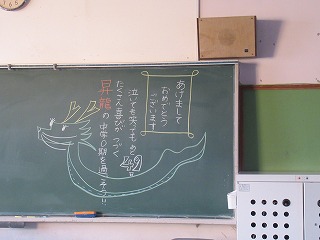 あけまして
おめでとう
ございます
泣いても笑ってもあと
たくさん喜びがつづく
昇龍の中学〇期を過ごそう!!